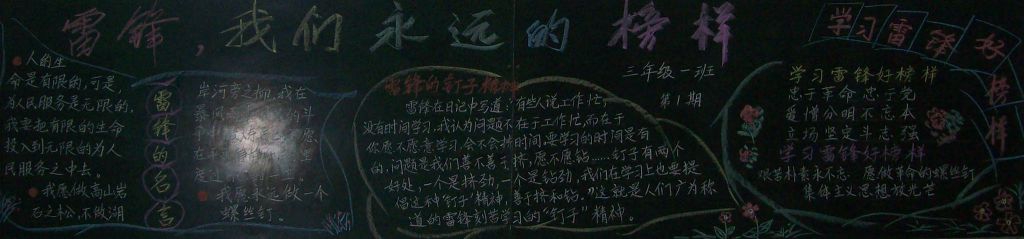 雷锋,我们永远的榜样
三年级一班
第1期
人的生
命是有限的,可是,
为人民服务是无限的,
我要把有限的生命
投入到无限的为人
民服务之中去。
我愿做高山岩
石之松,不做湖
雷锋的名言
岸河旁之柳,我在
我愿永远做一个
螺丝钉。
雷锋的钉子精神
雷锋在日记中写道:有些人说工作忙,
没有时间学习,我认为问题不在于工作忙,而在于
你愿不愿意学习,会不会挤时间,要学习的时间是有
的,问题是我们善不善于挤,愿不愿钻……钉子有两个
好处,一个是挤劲,一个是钻劲,我们在学习上也要提
倡这种"钉子"精神,善于挤和钻。"这就是人们广为称
道的雷锋刻苦学习的"钉子"精神。
学习雷锋好榜样
学习雷锋好榜样
忠于革命 忠于党
爱憎分明不忘本
立场坚定斗志强
学习雷锋好榜样
艰苦朴素永不忘 愿做革命的螺丝钉
集体主义思想放光芒